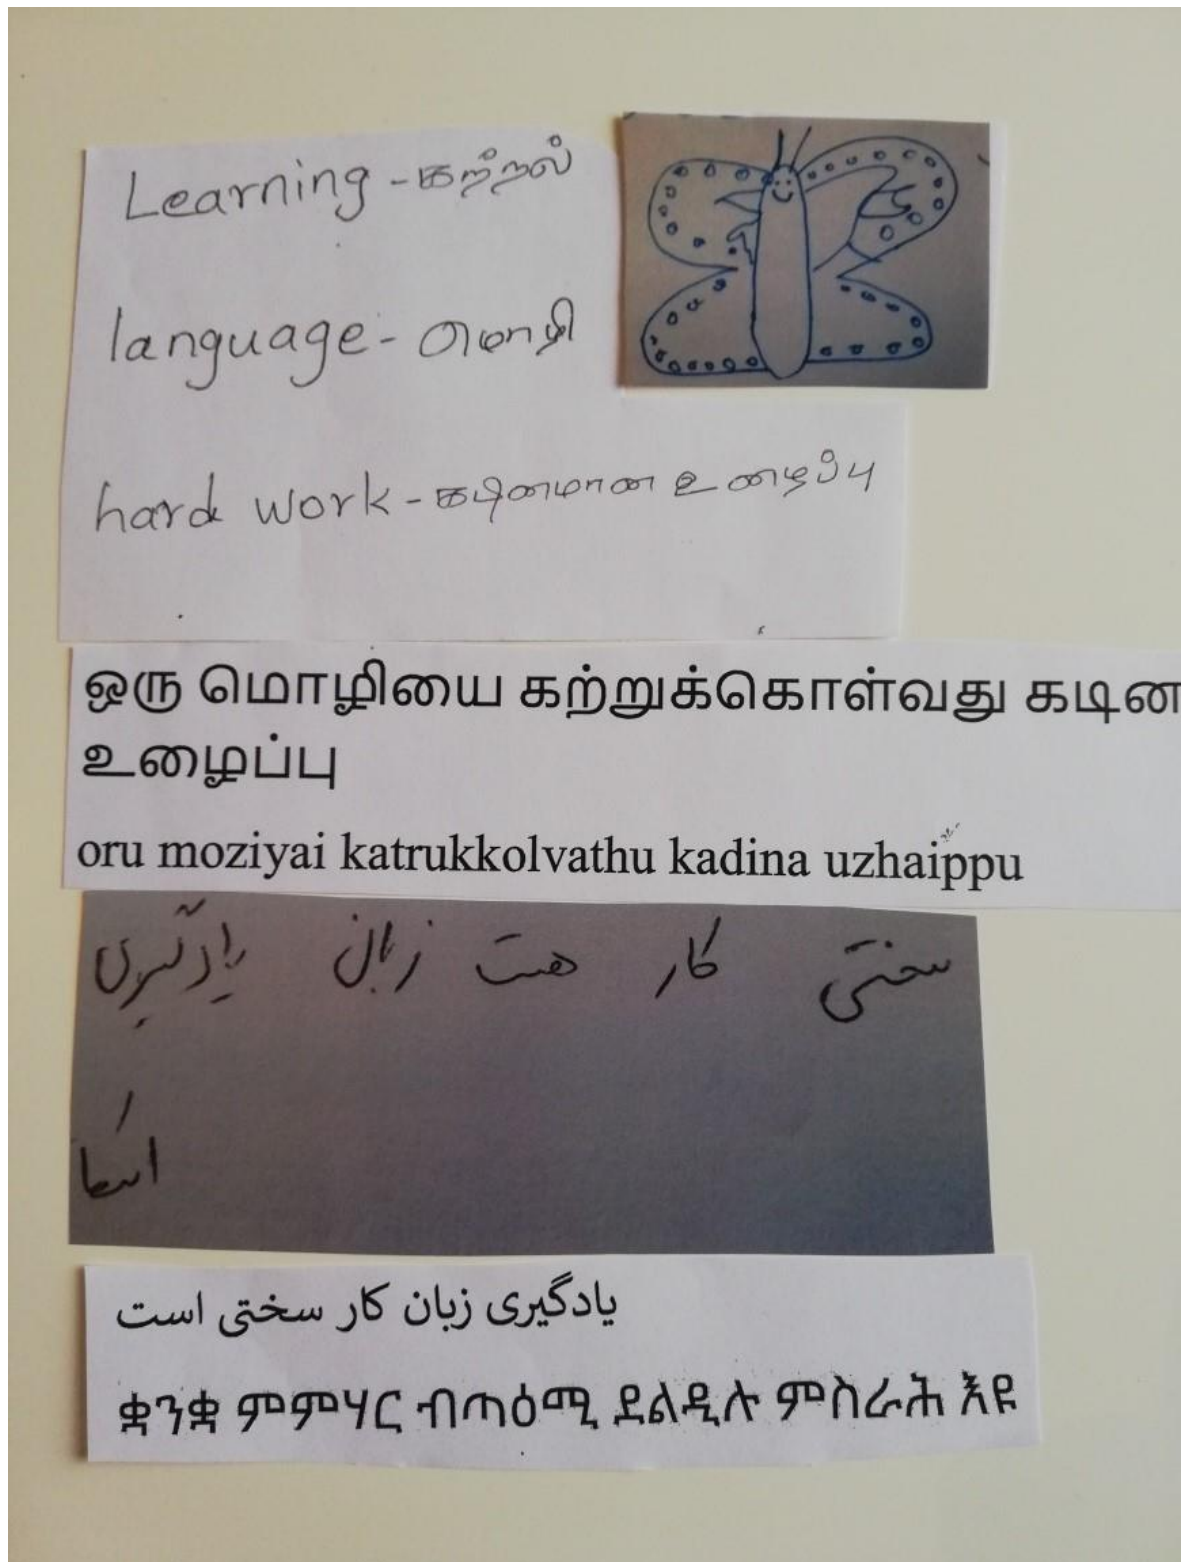 Learning - கற்றல்
language - மொழி
hard work - கடினமான உழைப்பு
ஒரு மொழியை கற்றுக்கொள்வது கடின
உழைப்பு
oru moziyai katrukkolvathu kadina uzhaippu
سختی کار هست زبان یادگیری
یادگیری زبان کار سختی است
ቋንቋ ምምሃር ብጣዕሚ ደልዲሉ ምስራሕ እዩ